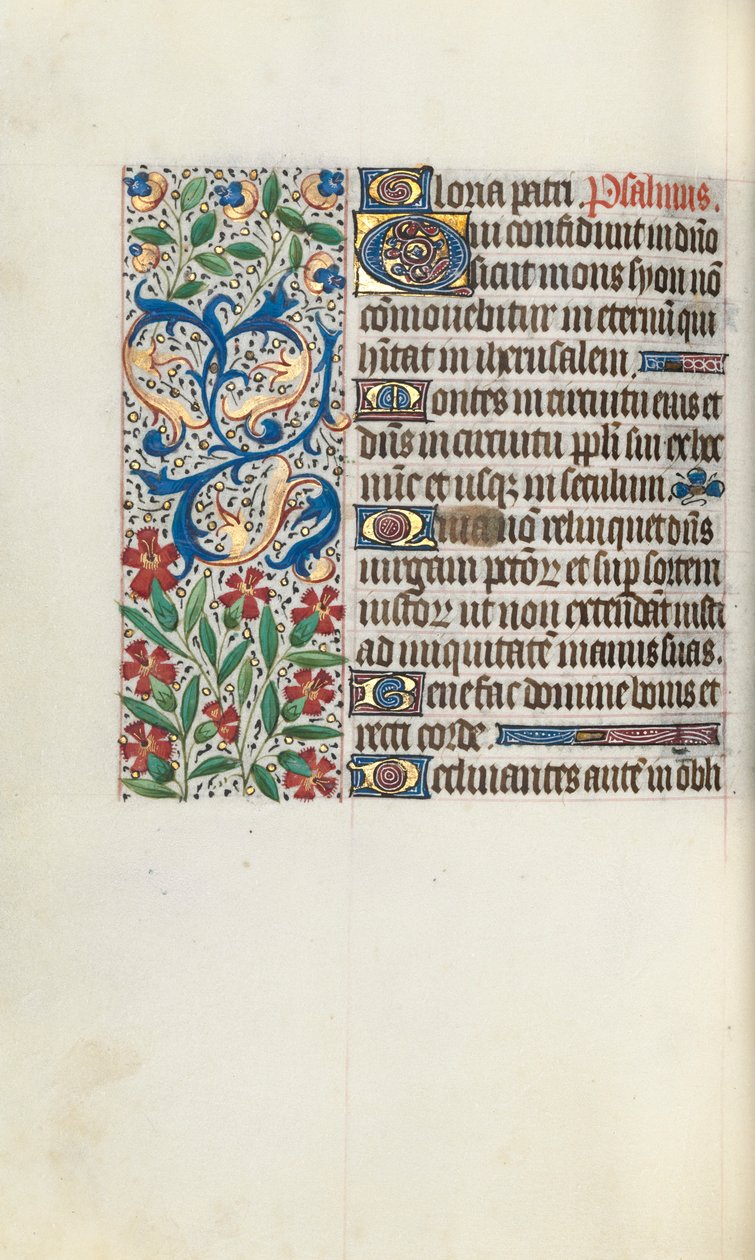 Gloria patri. Psalmus.
Qui confidunt in dño
sicut mons syon nõ
cõmovebitur in eternũ qui
hĩtat in iherusalem.
Montes in circuitu eius et
dñs in circuitu ppĺi sui ex hoc
nũc et usqꝫ in seculum.
Quia nõ relinquet dñs
virgam pctõꝝ et sup sortem
iustoꝝ ut non extendãt iusti
ad iniquitatẽ manus suas.
Benefac domine bonis et
recti corde.
Declinantes autẽ in obli